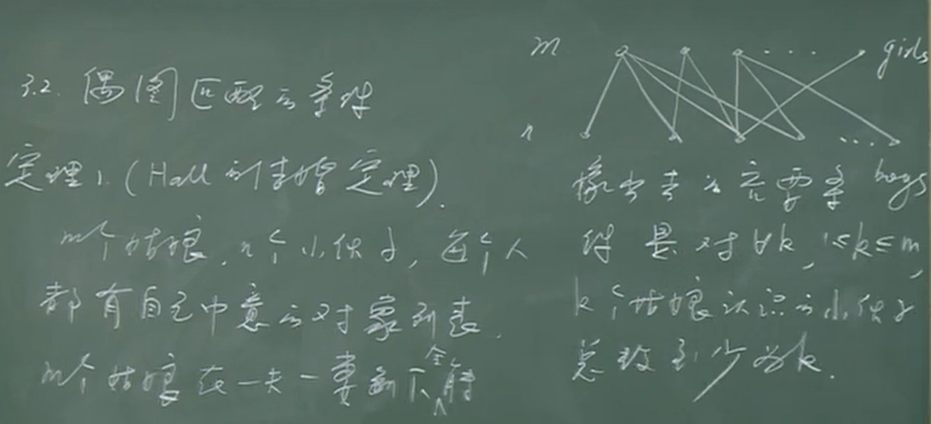 3.2. 偶图匹配的条件
定理1. (Hall 的结婚定理).
m个姑娘, n个小伙子, 每个人
都有自己中意的对象列表,
m个姑娘在一夫一妻制下全能
m
girls
n
boys
嫁出去的充要条
件是对∀k, 1≤k≤m,
k个姑娘认识的小伙子
总数至少为k.